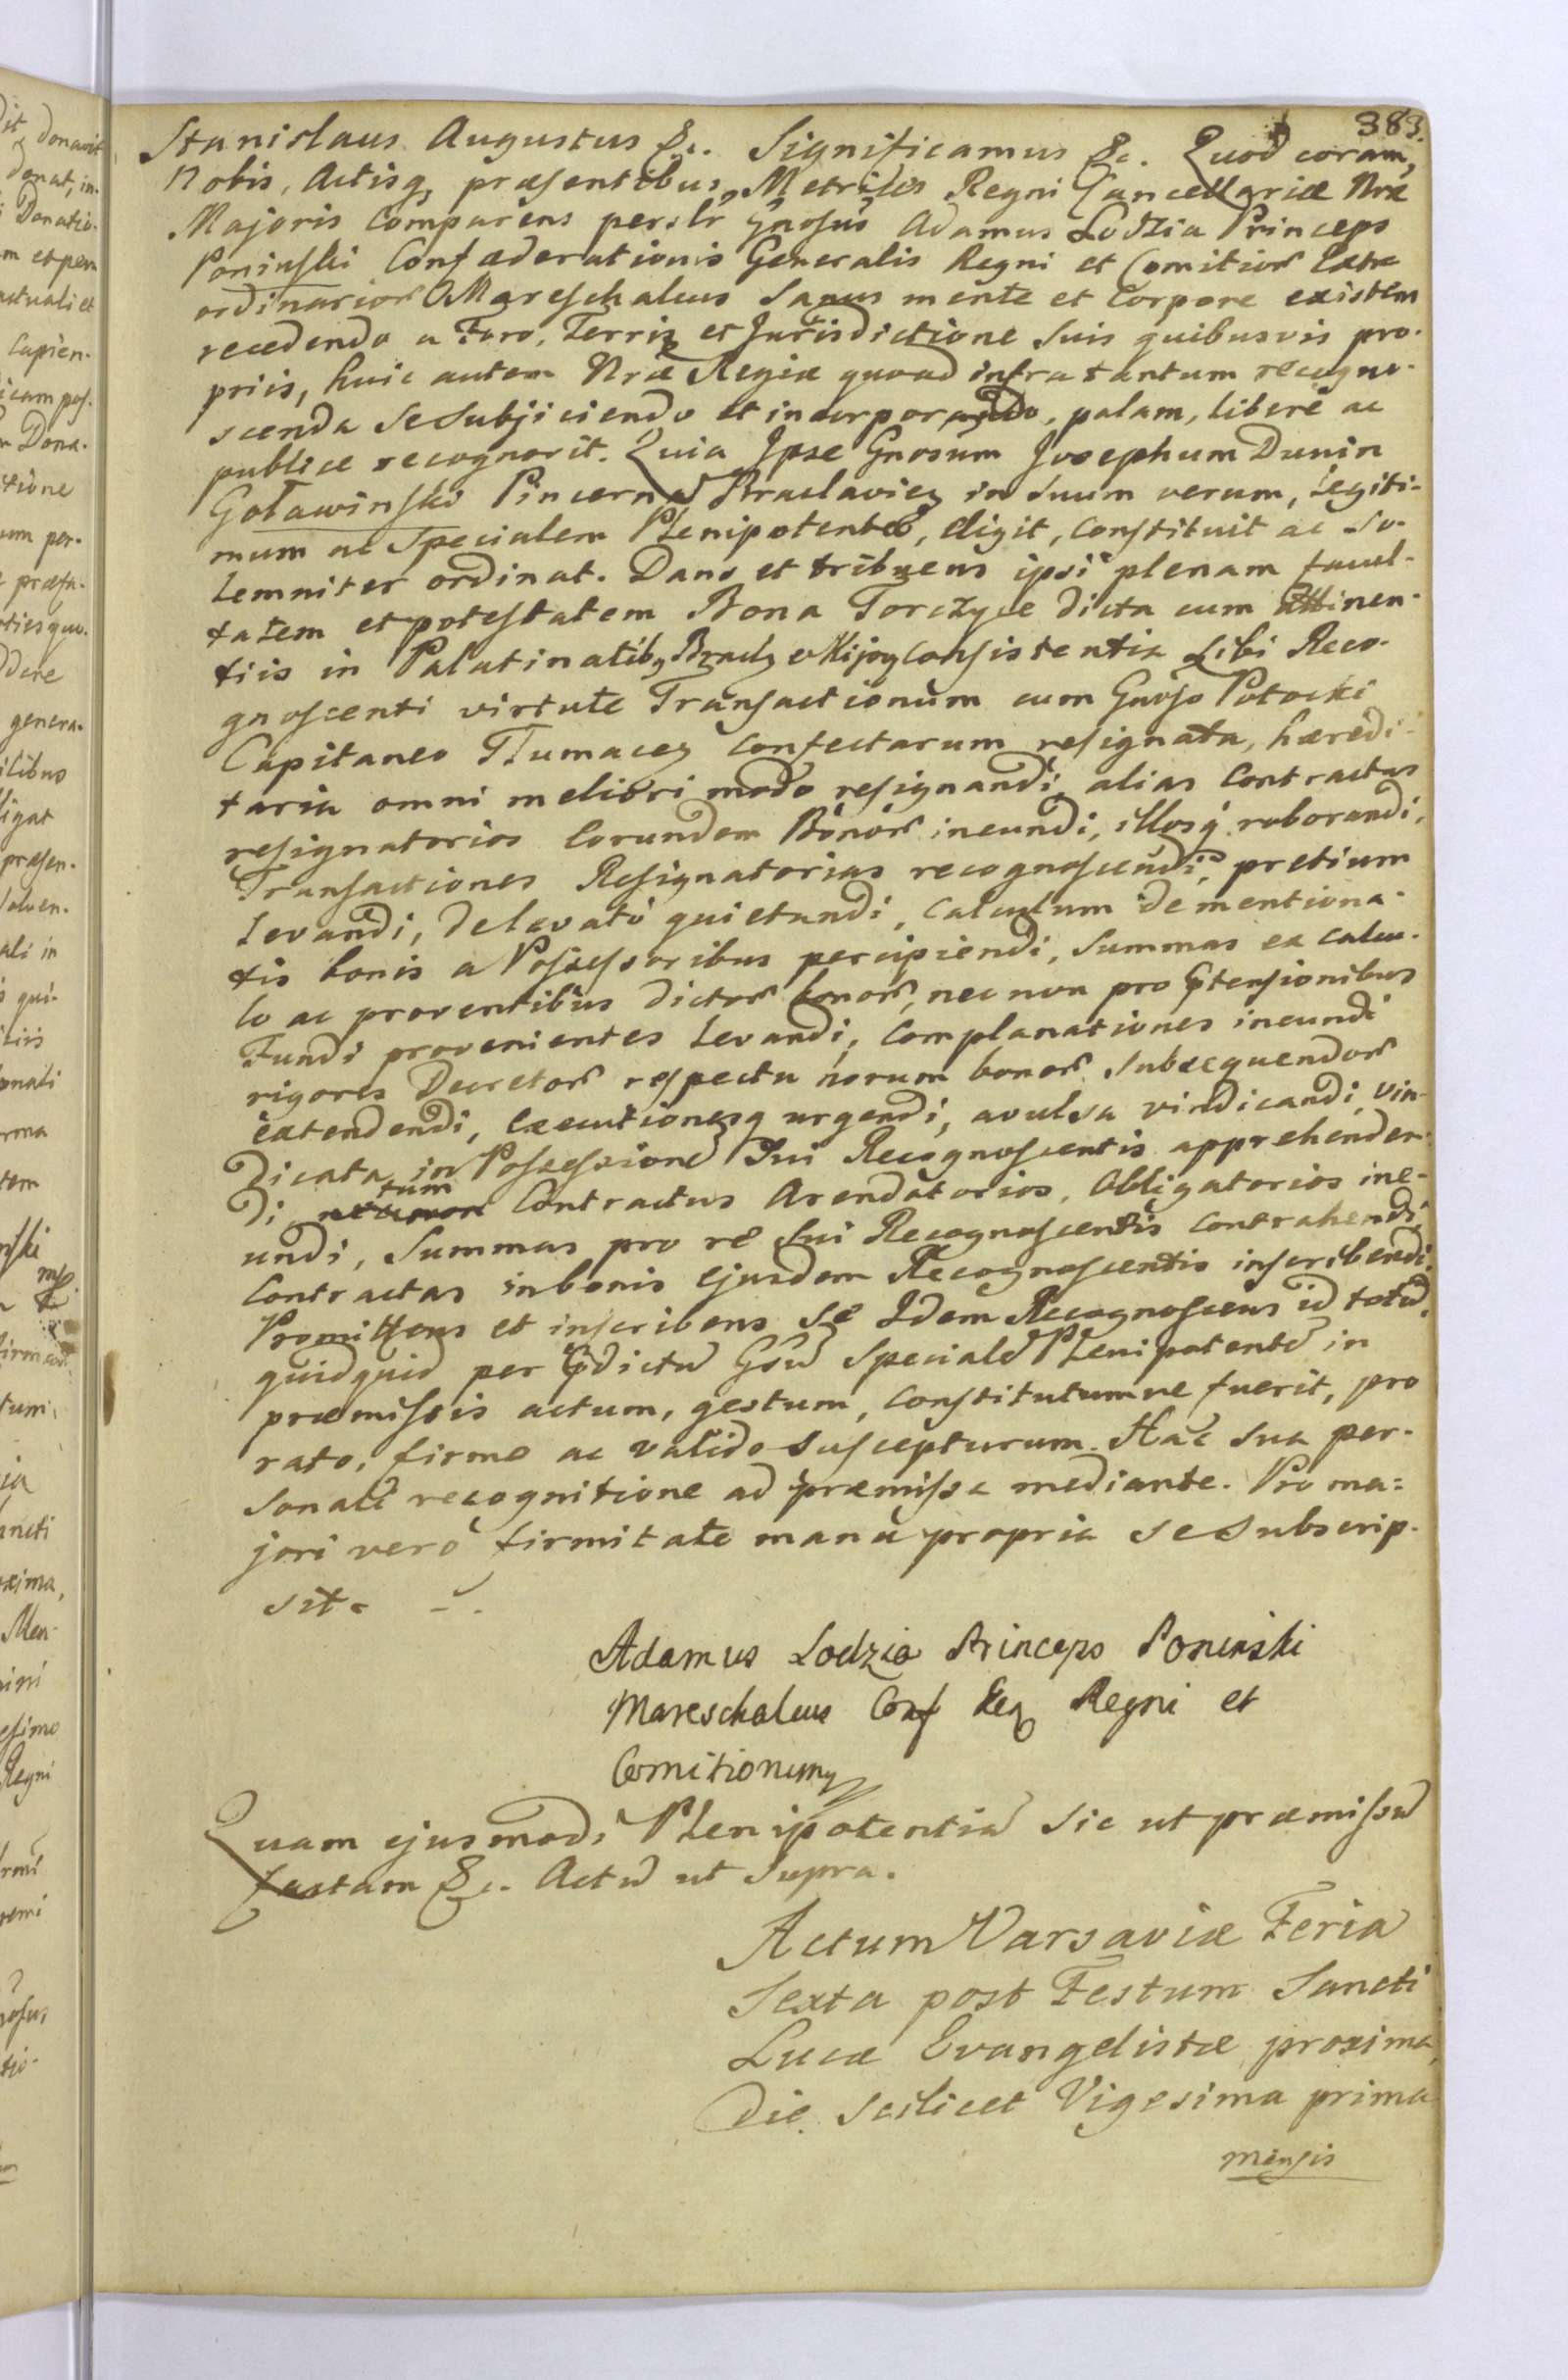 383.
Stanislaus Augustus &c. Significamus &c. Quod coram,
Nobis, Actisq, præsentibus Metrices Regni Cancellariæ Nræ
Majoris Comparens perslr Gnosus Adamus Lodzia Princeps
Poninski Confæderationis Generalis Regni et Comitior Extra
ordinarior Mareschalcus Sanus mente et Corpore existens
recedendo a Foro, Terris et Jurisdictione Suis quibusvis pro-
priis, huic autem Nræ Regiæ quoad infra tantum recogno-
scenda Se Subjiciendo et incorporando, palam, liberè ac
publice recognovit. Quia Ipse Gnosum Josephum Dunin
Goławinski Pincernā Braclavieñ in Suum verum, Legiti-
mum ac Specialem Plenipotentē, eligit, Constituit ac So-
lemniter ordinat. Dans et tribuens ipsi plenam facul-
tatem et potestatem Bona Torczyce dicta cum Attinen-
tiis in Palatinatibq Bracl et Kijov Consistentia Sibi Reco-
gnoscenti virtute Transactionum cum Gnoso Potocki
Capitaneo Tłumaceñ Confectarum resignata, hæredi-
taria omni meliori modo resignandi, alias Contractus
resignatorios Eorundem Bonor ineundi, illosq roborandi,
Transactiones Resignatorias recognoscendi, pretium
Levandi, de levato quietandi, Calculum de mentiona-
tis bonis a Possessoribus percipiendi, Summas ex Calcu-
lo ac proventibus dictor bonor, nec non pro ptensionibus
Fundi provenientes Levandi, Complanationes ineundi
rigores Decretor respectu horum bonor Subsequendor
extendendi, Executionesq urgendi, avulsa vindicandi, vin-
dicata in Possessionē Sui Recognoscentis apprehenden-
di, tum Contractus Arendatorios, Obligatorios ine-
undi, Summas pro re Sui Recognoscentis Contrahendi,
Contractas in bonis Ejusdem Recognoscentis inscribendi.
Promittens et inscribens Se Idem Recognoscens id totū,
quidquid per pdictū Gsū Specialē Plenipotentē in
præmissis actum, gestum, Constitutumve fuerit, pro
rato, firmo ac valido Suscepturum. Hac Sua per-
sonali recognitione ad præmissa mediante. Pro ma=
jori verò firmitate manu propria Se Subscrip-
sit. -.
Adamus Lodzia Princeps Poninski
Mareschalcus Conf Reg Regni et
Comitionum
Quam ejusmodi Plenipotentiā Sic ut præmissū
factam &c. Actū ut Supra.
Actum Varsaviæ Feria
Sexta post Festum Sancti
Lucæ Evangelistæ proxima,
Die Scilicet Vigesima prima
mensis